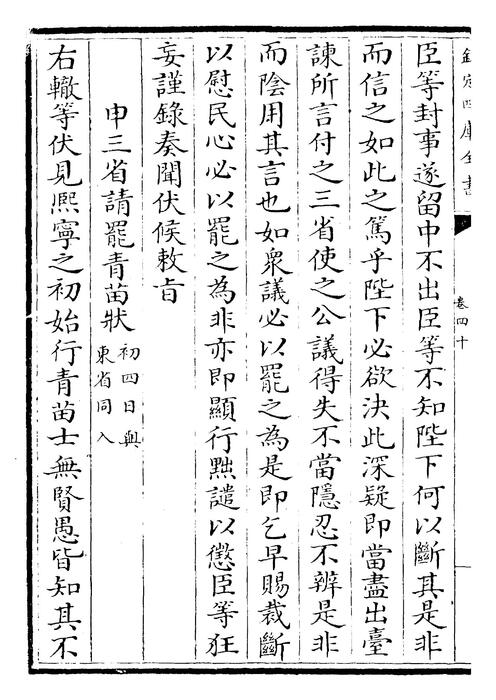 欽定四庫全書
卷四十
臣等封事遂留中不出臣等不知陛下何以斷其是非
而信之如此之篤乎陛下必欲決此深疑即當盡出臺
諫所言付之三省使之公議得失不當隱忍不辨是非
而陰用其言也如衆議必以罷之為是即乞早賜裁斷
以慰民心必以罷之為非亦即顯行黜譴以懲臣等狂
妄謹錄奏聞伏候敕旨
申三省請罷青苗狀
初四日與
東省同入
右轍等伏見熙寧之初始行青苗士無賢愚皆知其不